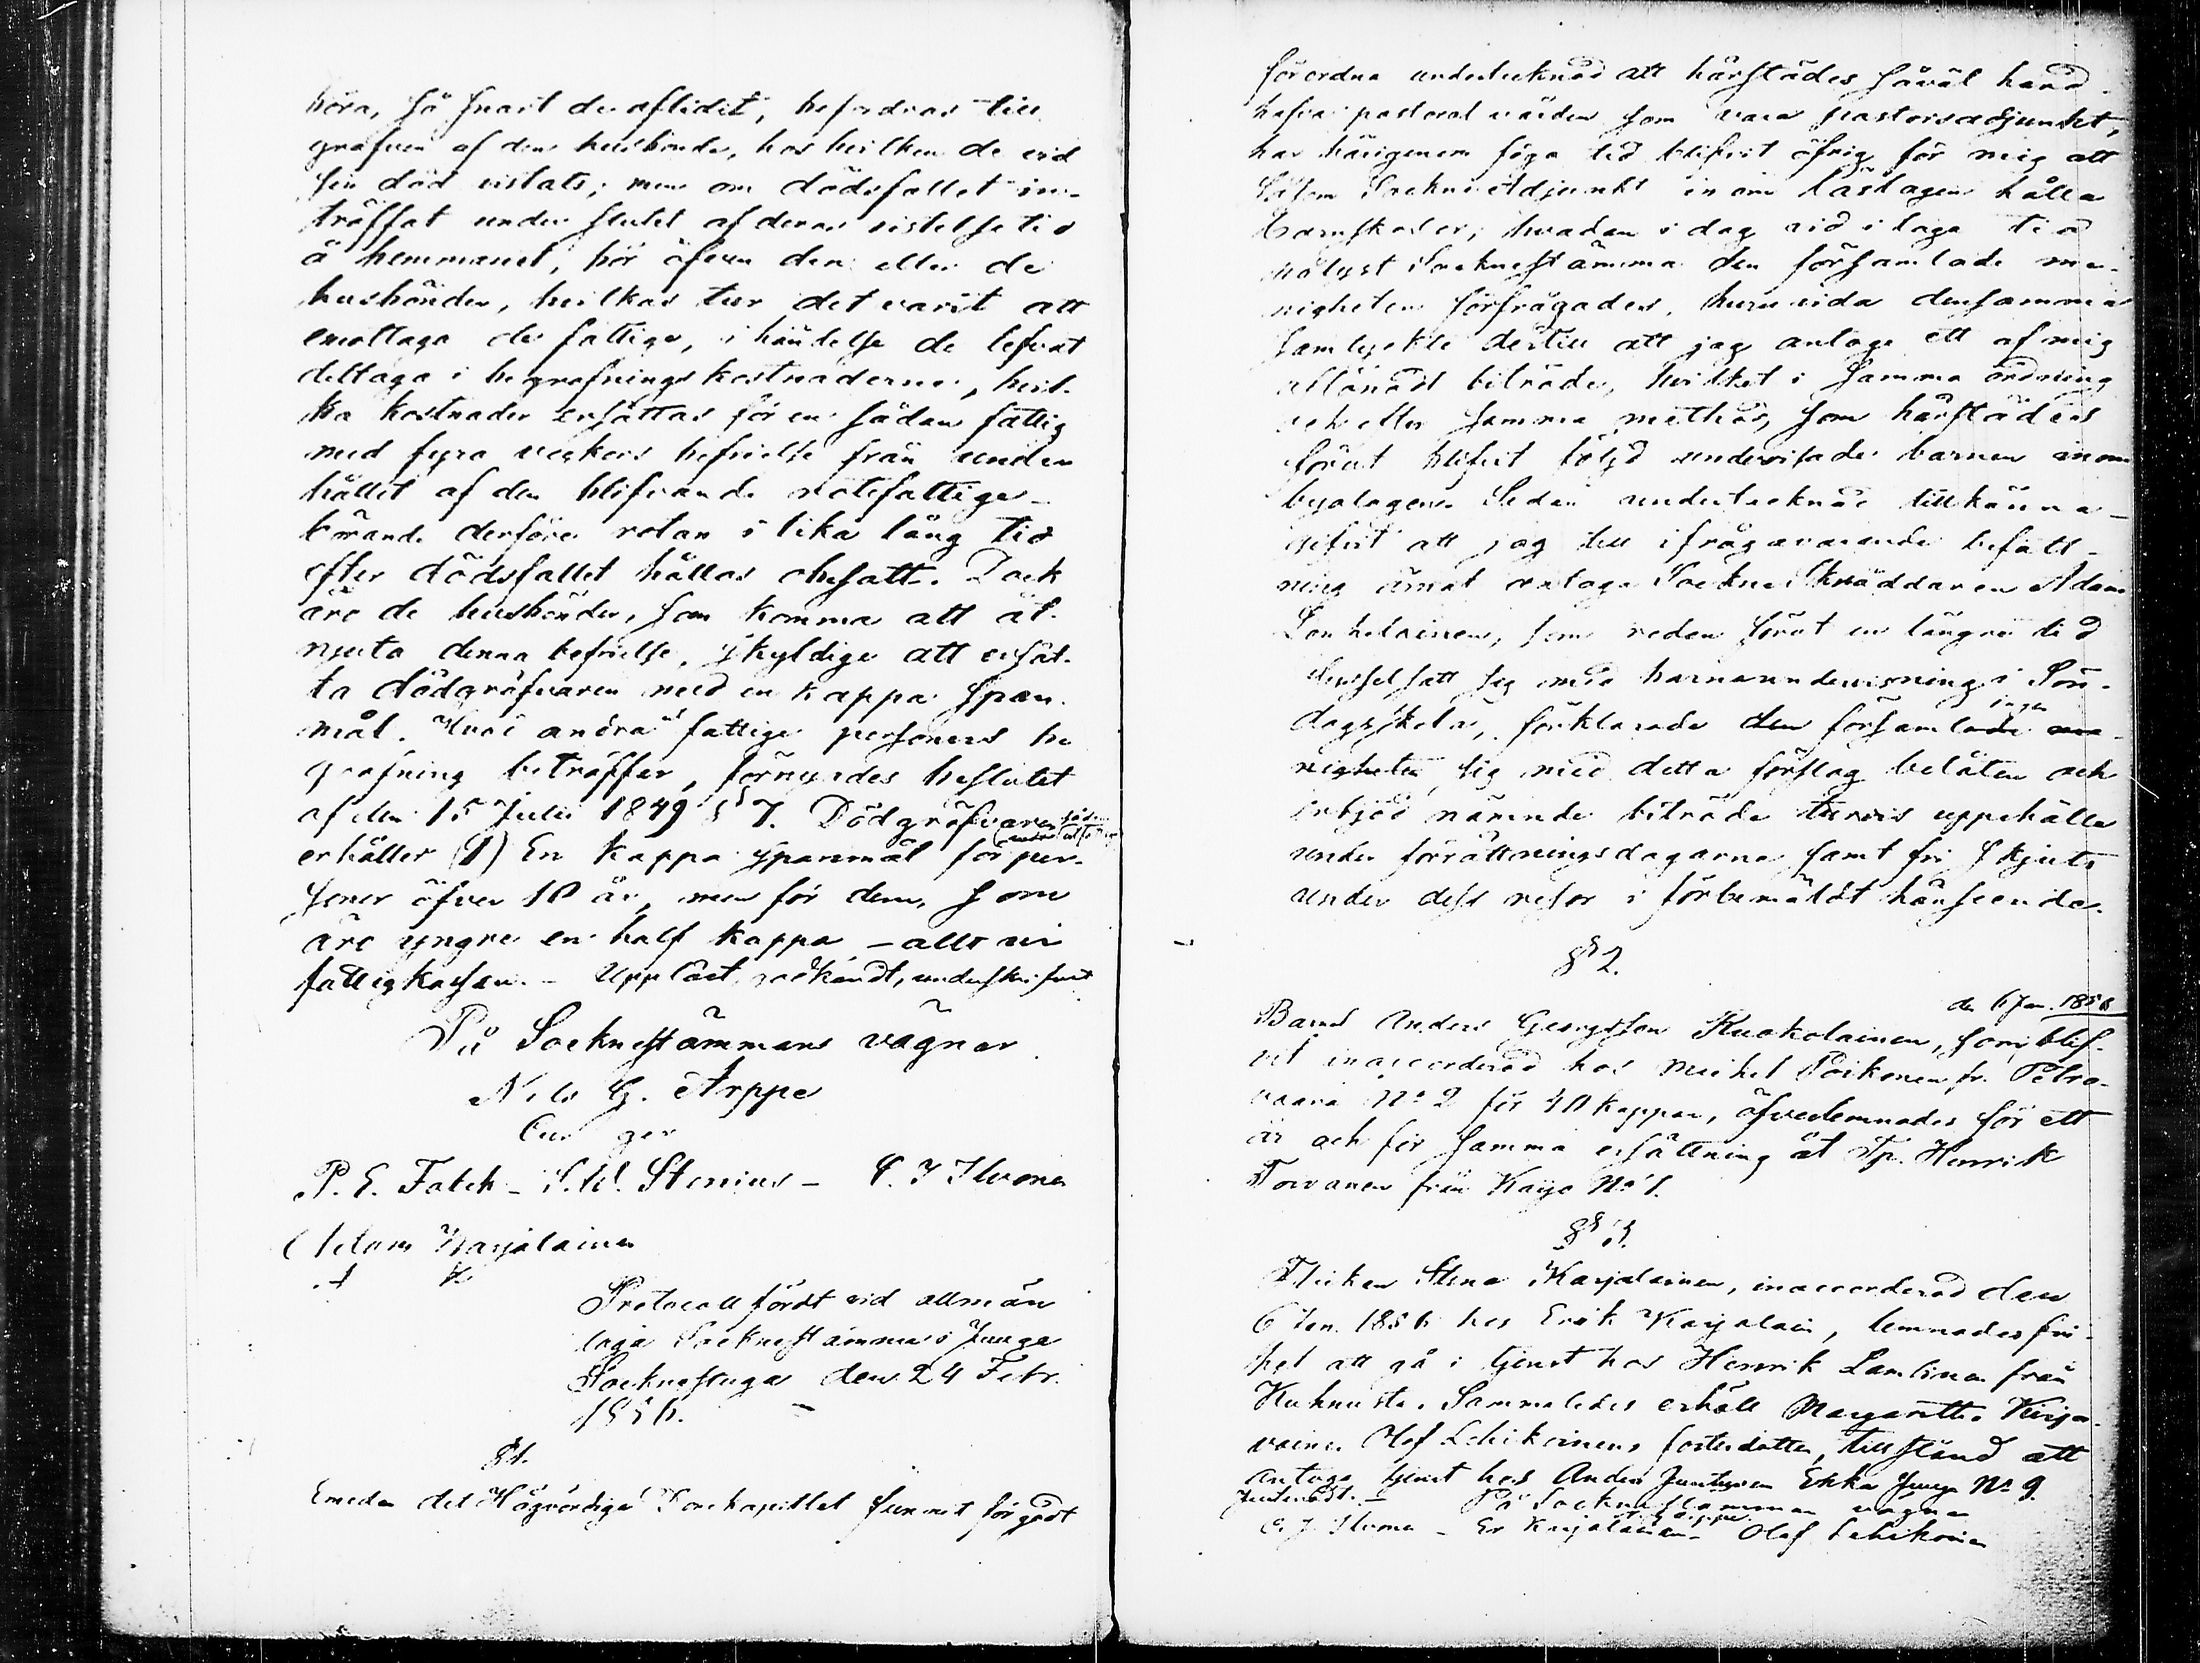 höra, så snart de aflidit, befordras till
grafven af den husbonde, hos hvilken de vid
sin död vistats; men om dödsfallet in-
träffat under slutet af deras vistelse tid
å hemmanet, bör äfven den eller de
husbönder, hvilkas tur det varit att
emottaga de fattige, i händelse de lefvat
deltaga i begrafnings kostnaderne, hvil-
ka kostnader ersättas för en sådan fattig
med fyra veckors befrielse från under
hållet af den blifvande rotefattige -
börande derföre rotan i lika lång tid
efter dödsfallet hållas obesatt. Dock
äro de husbönder, som komma att åt-
njuta denna befrielse, skyldige att ersät-
ta dödgräfvaren med en kappa span-
mål. Hvad andra fattige personers be
grafning beträffar, förnyades beslutet
af den 15 Julii 1849 § 7. Dödgräfvaren
erhåller (1) En kappa spanmål för per-
soner öfver 10 år, men för dem, som
äro yngre en half kappa - allt ur
fattigkassan. - Uppläst, godkändt, underskrifvet
På Socknestämmans vägnar
Nils G. Arppe
P. E. Fabck - S. W. Stenius - C. J Ilvonen
Adam Karjalainen
A K
Protocoll fördt vid allmän
laga Socknestämma i Juuga
Sockenstuga den 24 Febr.
1856.
§ 1.
Emedan det Högvördiga Domkapitlet funnit för godt
förordna undertecknad att härstädes såväl hand-
hafva pastoral vården som vara pastorsadjunkt,
har härigenom föga tid blifvit öfrig för mig att
såsom Sockneadjunkt inom laslagen hålla
barnskolor; hvadan i dag vid i laga tid
pålyst Socknestämma den församlade me-
nigheten förfrågades, huruvida densamma
samtyckte dertill att jag antoge ett af mig
aflönadt biträde, hvilket i samma ordning
och efter samma method, som härstädes
förut blifvit följd undervisade barnen inom
byalagen. Sedan undertecknad tillkänna-
gifvit att jag till ifrågavarande befatt-
ning ämnat antaga Sockneskräddaren Adam
som redan förut en längre tid
sysselsatt sig med barnaundervisning i Sön-
dagsskola, förklarade den församlade me-
nigheten sig med detta förslag belåten och
erbjöd nämnde biträde turvis uppehälle
under förrättningsdagarne samt fri skjuts
under dess resor i förbemäldt hänseende.
§ 2.
den 6 Jan. 1856
Barnet Anders Georgsson Kuokolainen, som blif-
vit inaccorderad hos Mickel Poikonen fr. Petro-
vaara No 2 för 40 kappar, öfverlemnades för ett
år och för samma ersättning åt Tp. Henrik
Torvanen från Kayo No 1.
§ 3.
Flickan Stina Karjalainen, inaccorderad den
6 Jan. 1856 hos Erik Karjalain, lemnades fri-
het att gå i tjenst hos Henrik Lamlinen från
Kuhnusta. Sammaledes erhöll Margaretha Kirja-
vainen Olof Lehikoinens fosterdotter, tillstånd att
antaga tjenst hos Anders Juntunen Ekka Juuga No 9.
Justeradt. - På Socknestämmans vägnar
C. J Ilvonen - Er Karjalainen - Olof Lehikoinen